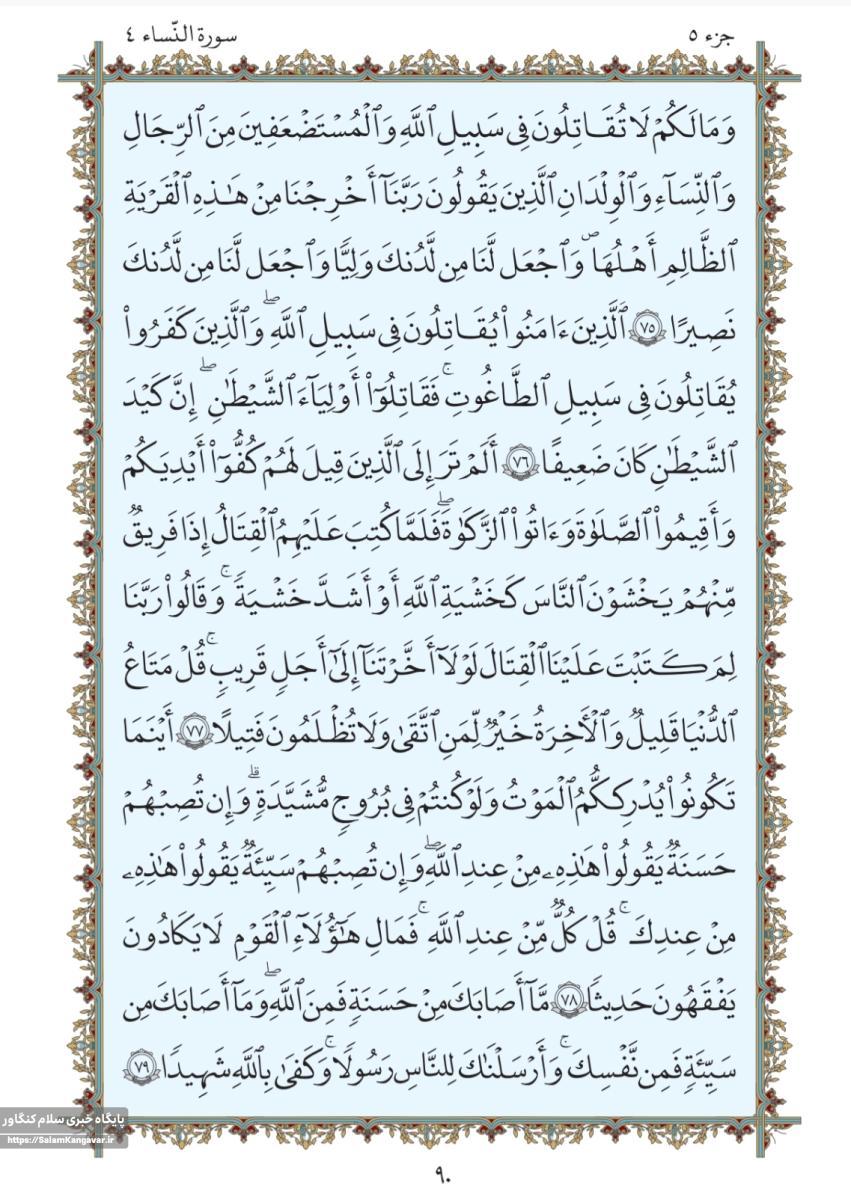 جزء ٥
سورة النّساء ٤
وَمَا لَكُمۡ لَا تُقَـٰتِلُونَ فِی سَبِیلِ ٱللَّهِ وَٱلۡمُسۡتَضۡعَفِینَ مِنَ ٱلرِّجَالِ
وَٱلنِّسَآءِ وَٱلۡوِلۡدَانِ ٱلَّذِینَ یَقُولُونَ رَبَّنَآ أَخۡرِجۡنَا مِنۡ هَـٰذِهِ ٱلۡقَرۡیَةِ
ٱلظَّالِمِ أَهۡلُهَاۖ وَٱجۡعَل لَّنَا مِن لَّدُنكَ وَلِیًّا وَٱجۡعَل لَّنَا مِن لَّدُنكَ
نَصِیرًا ٧٥ ٱلَّذِینَ ءَامَنُوا۟ یُقَـٰتِلُونَ فِی سَبِیلِ ٱللَّهِۖ وَٱلَّذِینَ كَفَرُوا۟
یُقَـٰتِلُونَ فِی سَبِیلِ ٱلطَّـٰغُوتِۚ فَقَـٰتِلُوٓا۟ أَوۡلِیَآءَ ٱلشَّیۡطَـٰنِۖ إِنَّ كَیۡدَ
ٱلشَّیۡطَـٰنِ كَانَ ضَعِیفًا ٧٦ أَلَمۡ تَرَ إِلَى ٱلَّذِینَ قِیلَ لَهُمۡ كُفُّوٓا۟ أَیۡدِیَكُمۡ
وَأَقِیمُوا۟ ٱلصَّلَوٰةَ وَءَاتُوا۟ ٱلزَّكَوٰةَۖ فَلَمَّا كُتِبَ عَلَیۡهِمُ ٱلۡقِتَالُ إِذَا فَرِیقٌ
مِّنۡهُمۡ یَخۡشَوۡنَ ٱلنَّاسَ كَخَشۡیَةِ ٱللَّهِ أَوۡ أَشَدَّ خَشۡیَةًۚ وَقَالُوا۟ رَبَّنَا
لِمَ كَتَبۡتَ عَلَیۡنَا ٱلۡقِتَالَ لَوۡلَآ أَخَّرۡتَنَآ إِلَىٰٓ أَجَلٍ قَرِیبٍۚ قُلۡ مَتَـٰعُ
ٱلدُّنۡیَا قَلِیلٌ وَٱلۡأَخِرَةُ خَیۡرٌ لِّمَنِ ٱتَّقَىٰ وَلَا تُظۡلَمُونَ فَتِیلًا ٧٧ أَیۡنَمَا
تَكُونُوا۟ یُدۡرِككُّمُ ٱلۡمَوۡتُ وَلَوۡ كُنتُمۡ فِی بُرُوجٍ مُّشَیَّدَةٍۗ وَإِن تُصِبۡهُمۡ
حَسَنَةٌ یَقُولُوا۟ هَـٰذِهِۦ مِنۡ عِندِ ٱللَّهِۖ وَإِن تُصِبۡهُمۡ سَیِّئَةٌ یَقُولُوا۟ هَـٰذِهِۦ
مِنۡ عِندِكَۚ قُلۡ كُلٌّ مِّنۡ عِندِ ٱللَّهِۚ فَمَالِ هَـٰٓؤُلَآءِ ٱلۡقَوۡمِ لَا یَكَادُونَ
یَفۡقَهُونَ حَدِیثًا ٧٨ مَّآ أَصَابَكَ مِنۡ حَسَنَةٍ فَمِنَ ٱللَّهِۖ وَمَآ أَصَابَكَ مِن
سَیِّئَةٍ فَمِن نَّفۡسِكَۚ وَأَرۡسَلۡنَـٰكَ لِلنَّاسِ رَسُولًاۚ وَكَفَىٰ بِٱللَّهِ شَهِیدًا ٧٩
پایگاه خبری سلام کنگاور
https://SalamKangavar.ir
٩٠